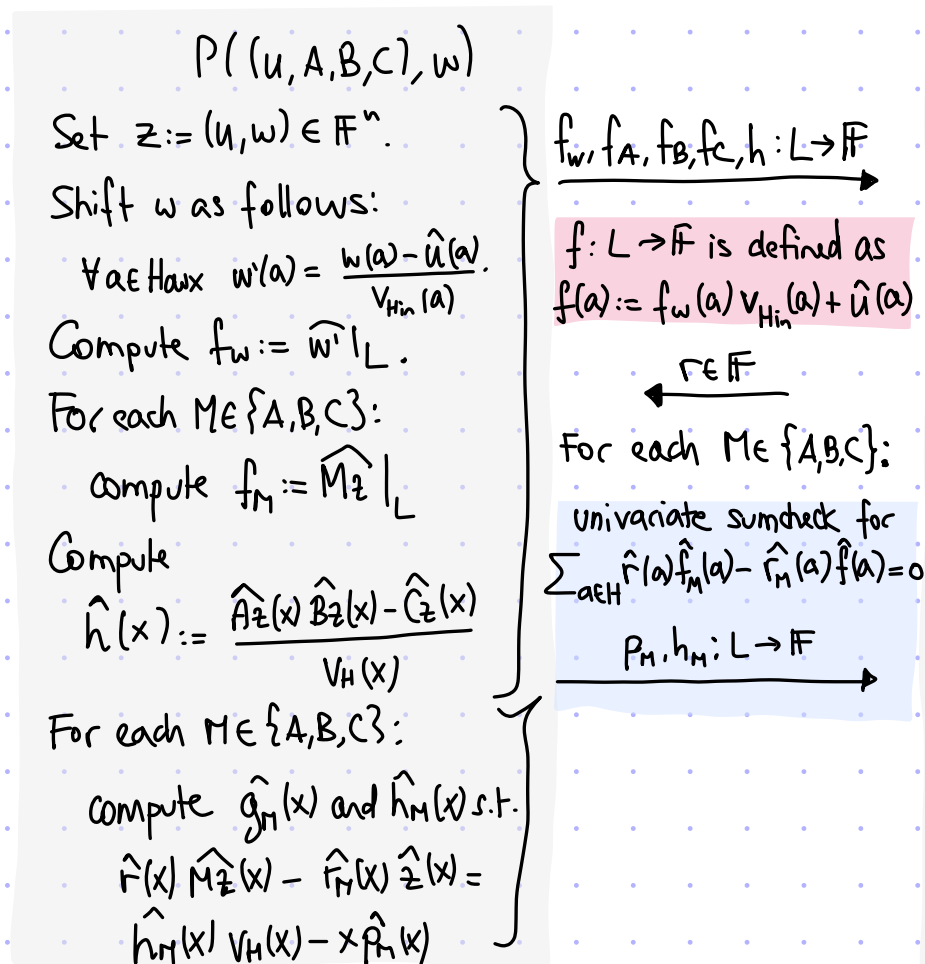 P((u,A,B,C),w)
Set z:=(u,w) ∈ 𝔽ⁿ.
Shift w as follows:
∀a∈Haux w'(a) = (w(a) - û(a)) / V_{Hin}(a).
Compute f_w := ŵ'|_L.
For each M∈{A,B,C}:
compute f_M := \widehat{Mz}|_L
Compute
ĥ(x) := (\widehat{Az}(x) \widehat{Bz}(x) - \widehat{Cz}(x)) / V_H(x)
For each M∈{A,B,C}:
compute ĝ_M(x) and ĥ_M(x) s.t.
r̂(x) \widehat{Mz}(x) - r̂_M(x) ẑ(x) =
ĥ_M(x) V_H(x) - x p̂_M(x)
f_w, f_A, f_B, f_C, h : L→𝔽
f: L→𝔽 is defined as
f(a) := f_w(a) V_{Hin}(a) + û(a)
r∈𝔽
For each M∈{A,B,C}:
univariate sumcheck for
∑_{a∈H} r̂(a) f̂_M(a) - r̂_M(a) f̂(a) = 0
p_M, h_M : L→𝔽